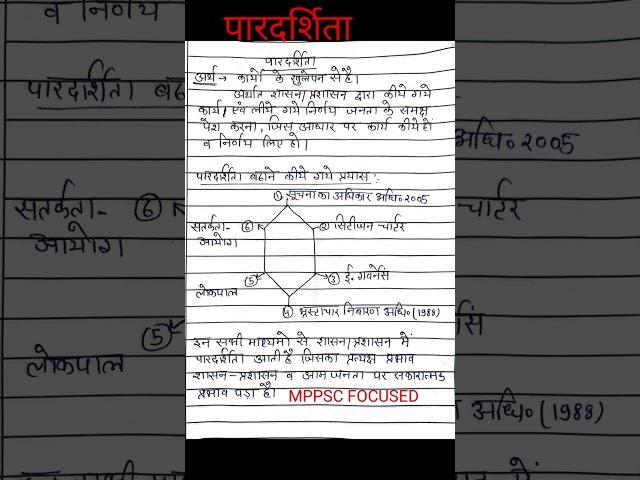 पारदर्शिता
पारदर्शिता
अर्थ → कार्यो के खुलेपन से है।
अर्थात शासन/प्रशासन द्वारा कीये गये
कार्य/एवं लीये गये निर्णय जनता के समक्ष
पेश करना, जिस आधार पर कार्य कीये हो
व निर्णय लिए हो।
पारदर्शिता बढाने कीये गये प्रयास :-
① सूचना का अधिकार अधि० 2005
सतर्कता- ⑥ ② सिटीजन चार्टर
आयोग
⑤ ③ ई. गवर्नेसिं
लोकपाल
④ भ्रस्टाचार निवारण अधि० (1988)
इन सभी माध्यमो से शासन/प्रशासन में
पारदर्शिता आती है जिसका प्रत्यक्ष प्रभाव
शासन-प्रशासन व आम जनता पर सकारात्मक
प्रभाव पड़ा है। MPPSC FOCUSED
व निर्णय
पारदर्शिता बढा
अधि० 2005
सतर्कता- ⑥
चार्टर
आयोग
⑤
लोकपाल
अधि० (1988)